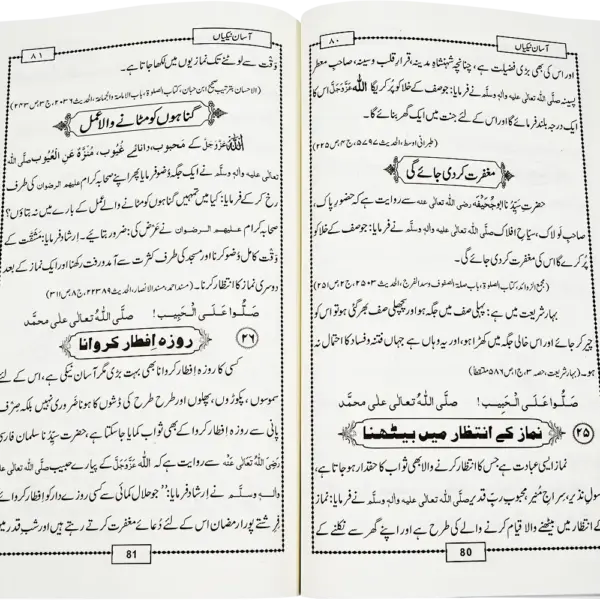 آسان نیکیاں
۸۰
اور اس کی بھی بڑی فضیلت ہے، چنانچہ شہنشاہِ مدینہ، قرارِ قلب و سینہ، صاحبِ معطر
پسینہ صلَّی اللہ تعالٰی علیہ والہٖ وسلَّم نے فرمایا: جو صف کے خلا کو پُر کریگا اللہ عَزَّوَجَلَّ اس کا
ایک درجہ بلند فرمائے گا اور اس کے لئے جنت میں ایک گھر بنائے گا۔
(طبرانی اوسط، الحدیث ۵۷۹۷، ج۴، ص۲۲۵)
مغفرت کردی جائے گی
حضرتِ سیِّدُنا ابو جُحَیْفَہ رضی اللہ تعالٰی عنہ سے روایت ہے کہ حضورِ پاک،
صاحبِ لَولاک، سیاحِ افلاک صلَّی اللہ تعالٰی علیہ والہٖ وسلَّم نے فرمایا: جو صف کے خلا کو
پُر کرے گا اس کی مغفرت کردی جائے گی۔
(مجمع الزوائد، کتاب الصلوۃ، باب صلۃ الصفوف وسد الفرج، الحدیث ۲۵۰۳، ج۲، ص۲۵۱)
بہارِ شریعت میں ہے: پہلی صف میں جگہ ہو اور پچھلی صف بھر گئی ہو تو اس کو
چیر کر جائے اور اس خالی جگہ میں کھڑا ہو، اور یہ وہاں ہے جہاں فتنہ وفساد کا احتمال نہ
ہو۔ (بہارِ شریعت، حصہ ۳، ج۱، ص۵۸۶ ملتقطاً)
صَلُّوا عَلَی الْحَبِیب! صلَّی اللہُ تعالٰی علٰی محمَّد
۲۵ نماز کے انتظار میں بیٹھنا
نماز ایسی عبادت ہے جس کا انتظار کرنے والا بھی ثواب کا حقدار ہوجاتا ہے،
سولِ نذیر، سِراجِ مُنیر، محبوبِ ربِّ قدیر صلَّی اللہ تعالٰی علیہ والہٖ وسلَّم نے فرمایا: نماز
کے انتظار میں بیٹھنے والا قیام کرنے والے کی طرح ہے اور اپنے گھر سے نکلنے کے
80
آسان نیکیاں
۸۱
وَقْت سے لوٹنے تک نمازیوں میں لکھا جاتا ہے۔
(الاحسان بترتیب صحیح ابن حبان، کتاب الصلوۃ، باب الامامۃ والجماعۃ، الحدیث ۲۰۳۶، ج۳، ص۲۴۳)
گناہوں کو مٹانے والا عمل
اللہ عَزَّوَجَلَّ کے محبوب، دانائے غُیُوب، مُنَزَّہٌ عَنِ الْعُیُوب صلَّی اللہ
تعالٰی علیہ والہٖ وسلَّم نے ایک جگہ وُضو فرمایا پھر اپنے صحابہ کرام علیہم الرضوان کی طرف
رخ کر کے فرمایا: کیا میں تمھیں گناہوں کو مٹانے والے عمل کے بارے میں نہ بتاؤں؟
صحابہ کرام علیہم الرضوان نے عَرْض کی: ضرور بتائیے۔ اِرشاد فرمایا: مَشَقَّت کے
وَقْت کامل وُضو کرنا اور مسجد کی طرف کثرت سے آمد ورفت رکھنا اور ایک نماز کے بعد
دوسری نماز کا انتظار کرنا۔ (مسند احمد، مسند الانصار، الحدیث ۲۲۳۸۹، ج۸، ص۳۱۱)
صَلُّوا عَلَی الْحَبِیب! صلَّی اللہُ تعالٰی علٰی محمَّد
۲۶ روزہ اِفطار کروانا
کسی کا روزہ اِفطار کروانا بھی بہت بڑی مگر آسان نیکی ہے، اس کے لئے
سموسوں، پکوڑوں، پھلوں اور طرح طرح کی ڈشوں کا ہونا ضَروری نہیں بلکہ صِرف
پانی سے روزہ اِفطار کروا کے بھی ثواب کمایا جاسکتا ہے، حضرت سیِّدُنا سلمان فارسی
رَضِیَ اللہُ تَعَالٰی عَنْہُ سے روایت ہے کہ اللہ عَزَّوَجَلَّ کے پیارے حبیب صلَّی اللہ تعالٰی علیہ
والہٖ وسلَّم نے اِرشاد فرمایا: ”جو حلال کمائی سے کسی روزے دار کو اِفطار کروائے
فِرِشتے پورا رمضان اس کے لئے دُعائے مغفرت کرتے رہتے ہیں اور شبِ قدر میں
81